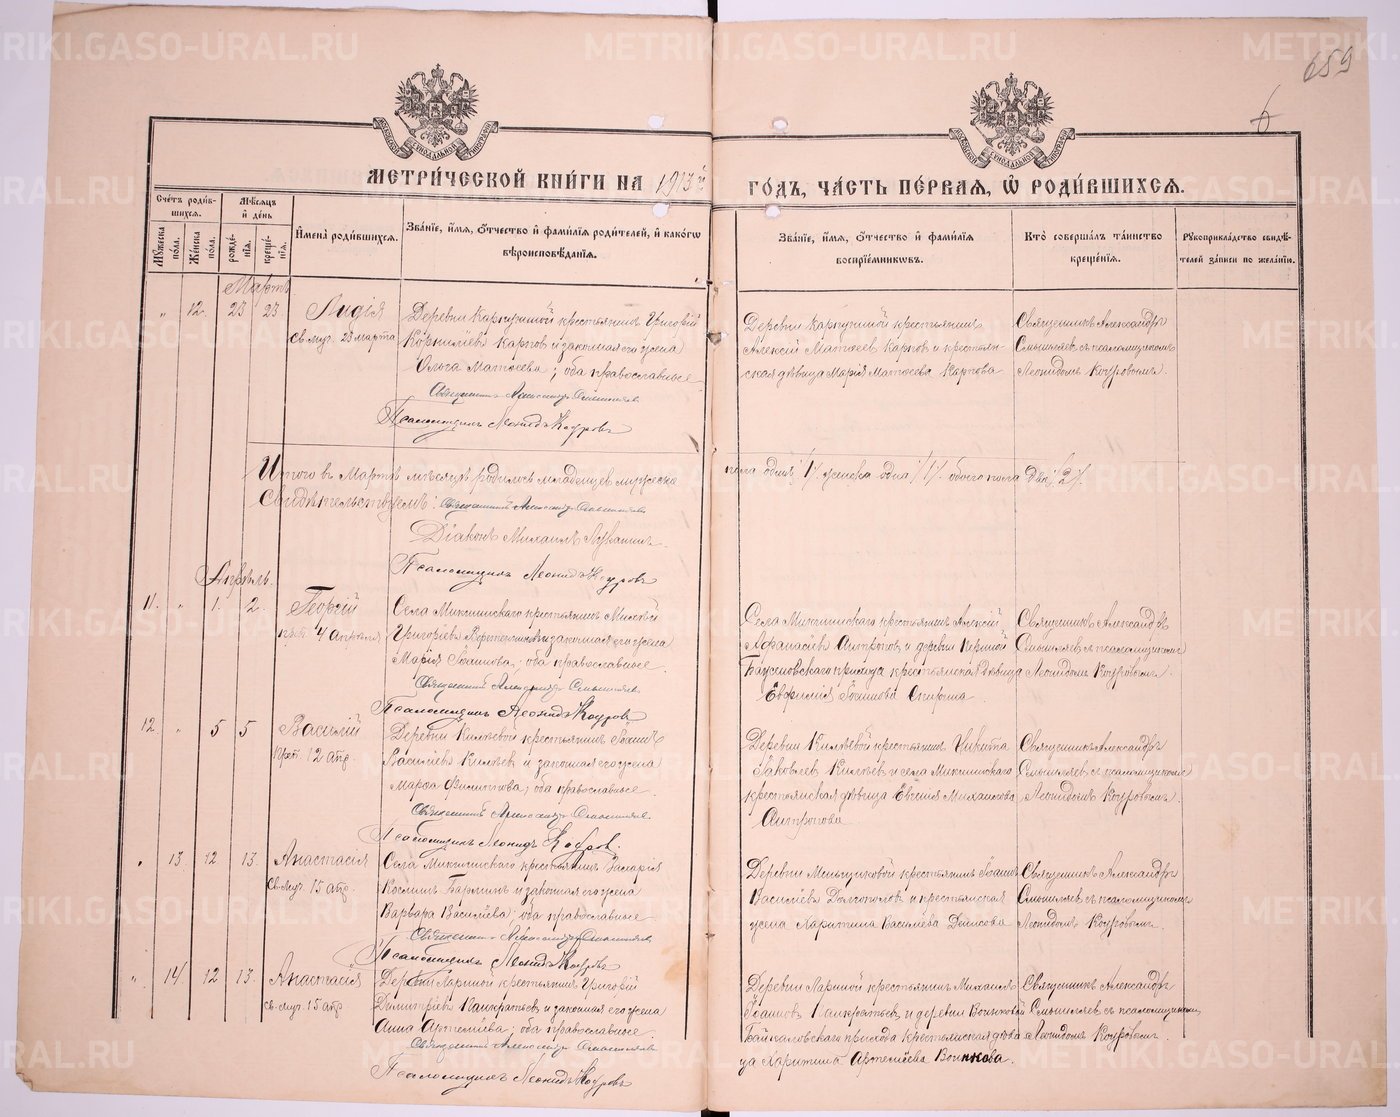 659
6
МЕТРИЧЕСКОЙ КНИГИ НА 1913й
ГОДЪ, ЧАСТЬ ПЕРВАЯ, Ѡ РОДИВШИХСЯ.
Счетъ родив-
шихся.
Мѣсяцъ
и день
Имена родившихся.
Званіе, имя, отчество и фамилія родителей, и какогѡ
вѣроисповѣданія.
Званіе, имя, отчество и фамилія
воспріемникѡвъ.
Кто совершалъ таинство
крещенія.
Рукоприкладство свидѣ-
телей записи по желанію.
Мужеска
пола.
Женска
пола.
рожде-
нія.
креще-
нія.
Мартъ
" 12. 23 23. Лидія
св. муч. 23 марта
Деревни Каргушиной крестьянинъ Григорій
Корниліевъ Карповъ и законная его жена
Ольга Матѳеева; оба православные
Священникъ Александръ Смышляевъ
Псаломщикъ Леонидъ Коуровъ
Деревни крестьянинъ
Алексій Матѳеевъ Карповъ и крестьян-
ская дѣвица Марія Матѳеева Карпова
Священникъ Александръ
Смышляевъ съ псаломщикомъ
Леонидомъ Коуровымъ.
Итого въ Мартѣ мѣсяцѣ родилось младенцев мужеска
пола одинъ /1/ женска одна /1/ обоего пола два /2/.
Свидѣтельствуемъ: Священникъ Александръ Смышляевъ
Діаконъ Михаилъ
Псаломщикъ Леонидъ Коуровъ
Апрѣль.
11. " 1. 2. Георгій
4 апрѣля
Села Микшинскаго крестьянинъ
Григоріевъ и законная его жена
Марія Іоаннова; оба православные
Священникъ Александръ Смышляевъ
Псаломщикъ Леонидъ Коуровъ
Села Микшинскаго крестьянинъ Алексій
Аѳанасіевъ Антроповъ и деревни
прихода крестьянская дѣвица
Евфимія Іоаннова
Священникъ Александръ
Смышляевъ съ псаломщикомъ
Леонидомъ Коуровымъ.
12 " 5 5 Василій
Преп. 12 апр.
Деревни Килѣевой крестьянинъ Іоаннъ
Василіевъ Килѣевъ и законная его жена
Марѳа Филиппова; оба православные
Священникъ Александръ Смышляевъ
Псаломщикъ Леонидъ Коуровъ.
Деревни Килѣевой крестьянинъ Никита
Іаковлевъ Килѣевъ и села Микшинскаго
крестьянская дѣвица Евгенія Михаилова
Антропова
Священникъ Александръ
Смышляевъ съ псаломщикомъ
Леонидомъ Коуровымъ.
" 13 12 13. Анастасія
Св. муч. 15 апр.
Села Микшинскаго крестьянинъ Захарія
Косминъ и законная его жена
Варвара Василіева; оба православные
Священникъ Александръ Смышляевъ
Псаломщикъ Леонидъ Коуровъ
Деревни Меньшиковой крестьянинъ Іоаннъ
Василіевъ Долгополовъ и крестьянская
жена Харитина Василіева Денисова
Священникъ Александръ
Смышляевъ съ псаломщикомъ
Леонидомъ Коуровымъ.
" 14 12 13. Анастасія
св. муч. 15 апр.
Деревни Лариной крестьянинъ Григорій
Димитріевъ Панкратьевъ и законная его жена
Анна Артеміева; оба православные
Священникъ Александръ Смышляевъ
Псаломщикъ Леонидъ Коуровъ
Деревни Лариной крестьянинъ Михаилъ
Іоанновъ Панкратьевъ и деревни Воинковой
Байкаловскаго прихода крестьянская дѣви-
ца Харитина Артеміева Воинкова.
Священникъ Александръ
Смышляевъ съ псаломщикомъ
Леонидомъ Коуровымъ.
METRIKI.GASO-URAL.RU